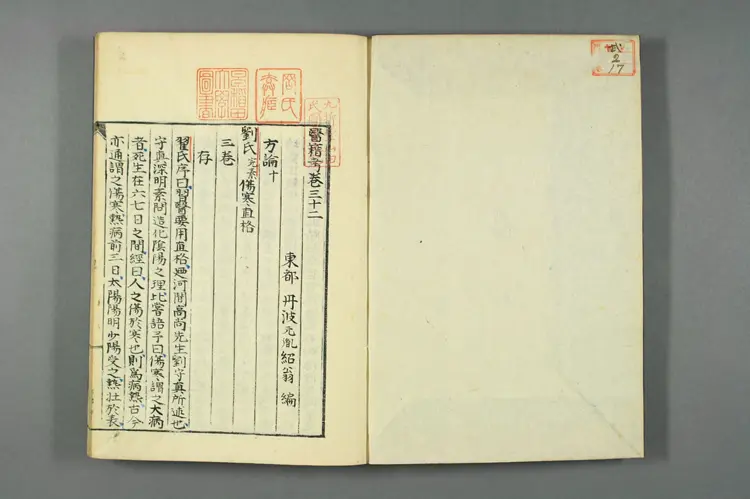 醫籍考卷三十二
東都 丹波元胤紹翁 編
方論十
劉氏完素傷寒直格
三卷
存
翟氏序曰習醫要用直格廼河間高尚先生劉守真所述也
守真深明素問造化陰陽之理比嘗語予曰傷寒謂之大病
者死生在六七日之間經曰人之傷於寒也則爲病熱古今
亦通謂之傷寒熱病前三日太陽陽明少陽受之熱壯於表
劉氏
圖書
2
17